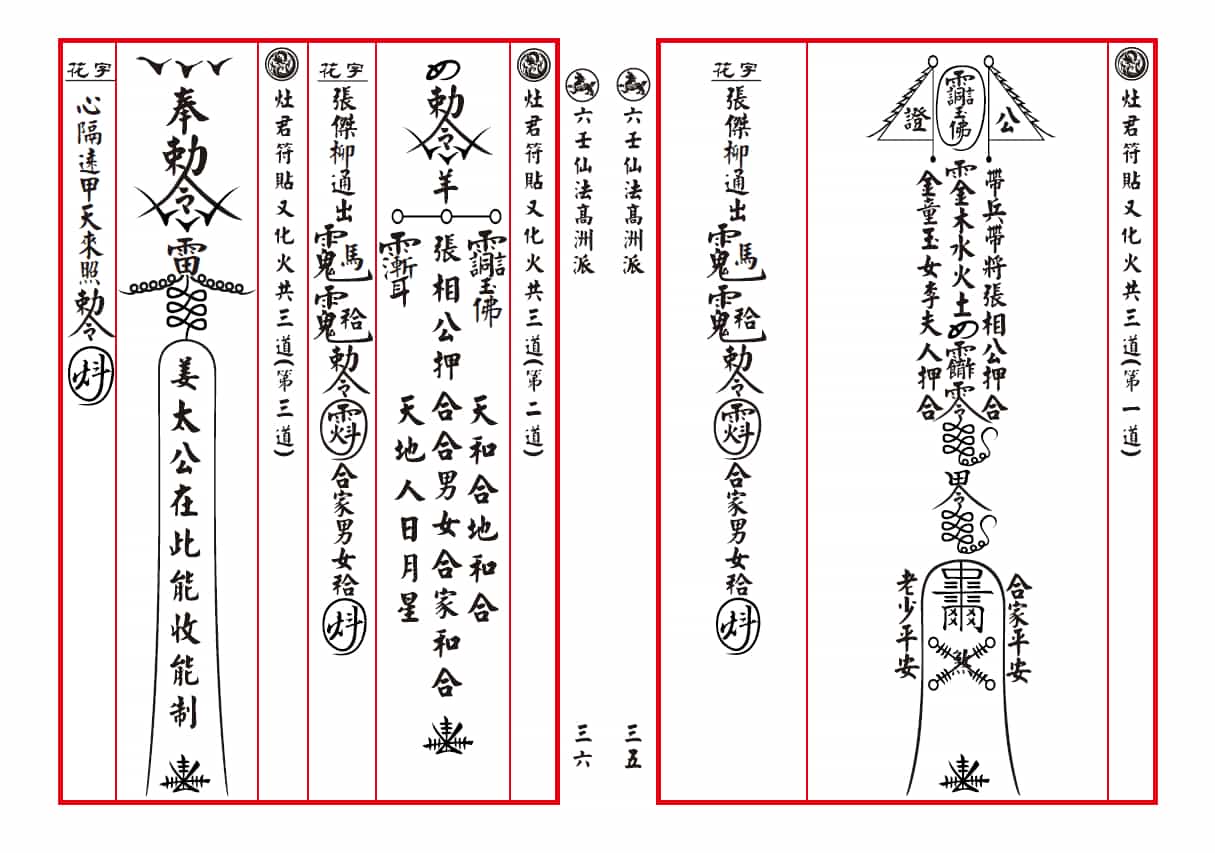 灶君符貼又化火共三道(第一道)
公
證
佛
帶兵帶將張相公押合
金木水火土
金童玉女李夫人押合
合家平安
煞
老少平安
花字
張傑柳通出
馬
勅令
合家男女
六壬仙法髙洲派
三五
六壬仙法髙洲派
三六
灶君符貼又化火共三道(第二道)
勅令
羊
佛
張相公押合合男女合家和合
天和合地和合
天地人日月星
花字
張傑柳通出
馬
勅令
合家男女
灶君符貼又化火共三道(第三道)
奉勅令
雷
姜太公在此能收能制
花字
心隔遠甲天來照勅令